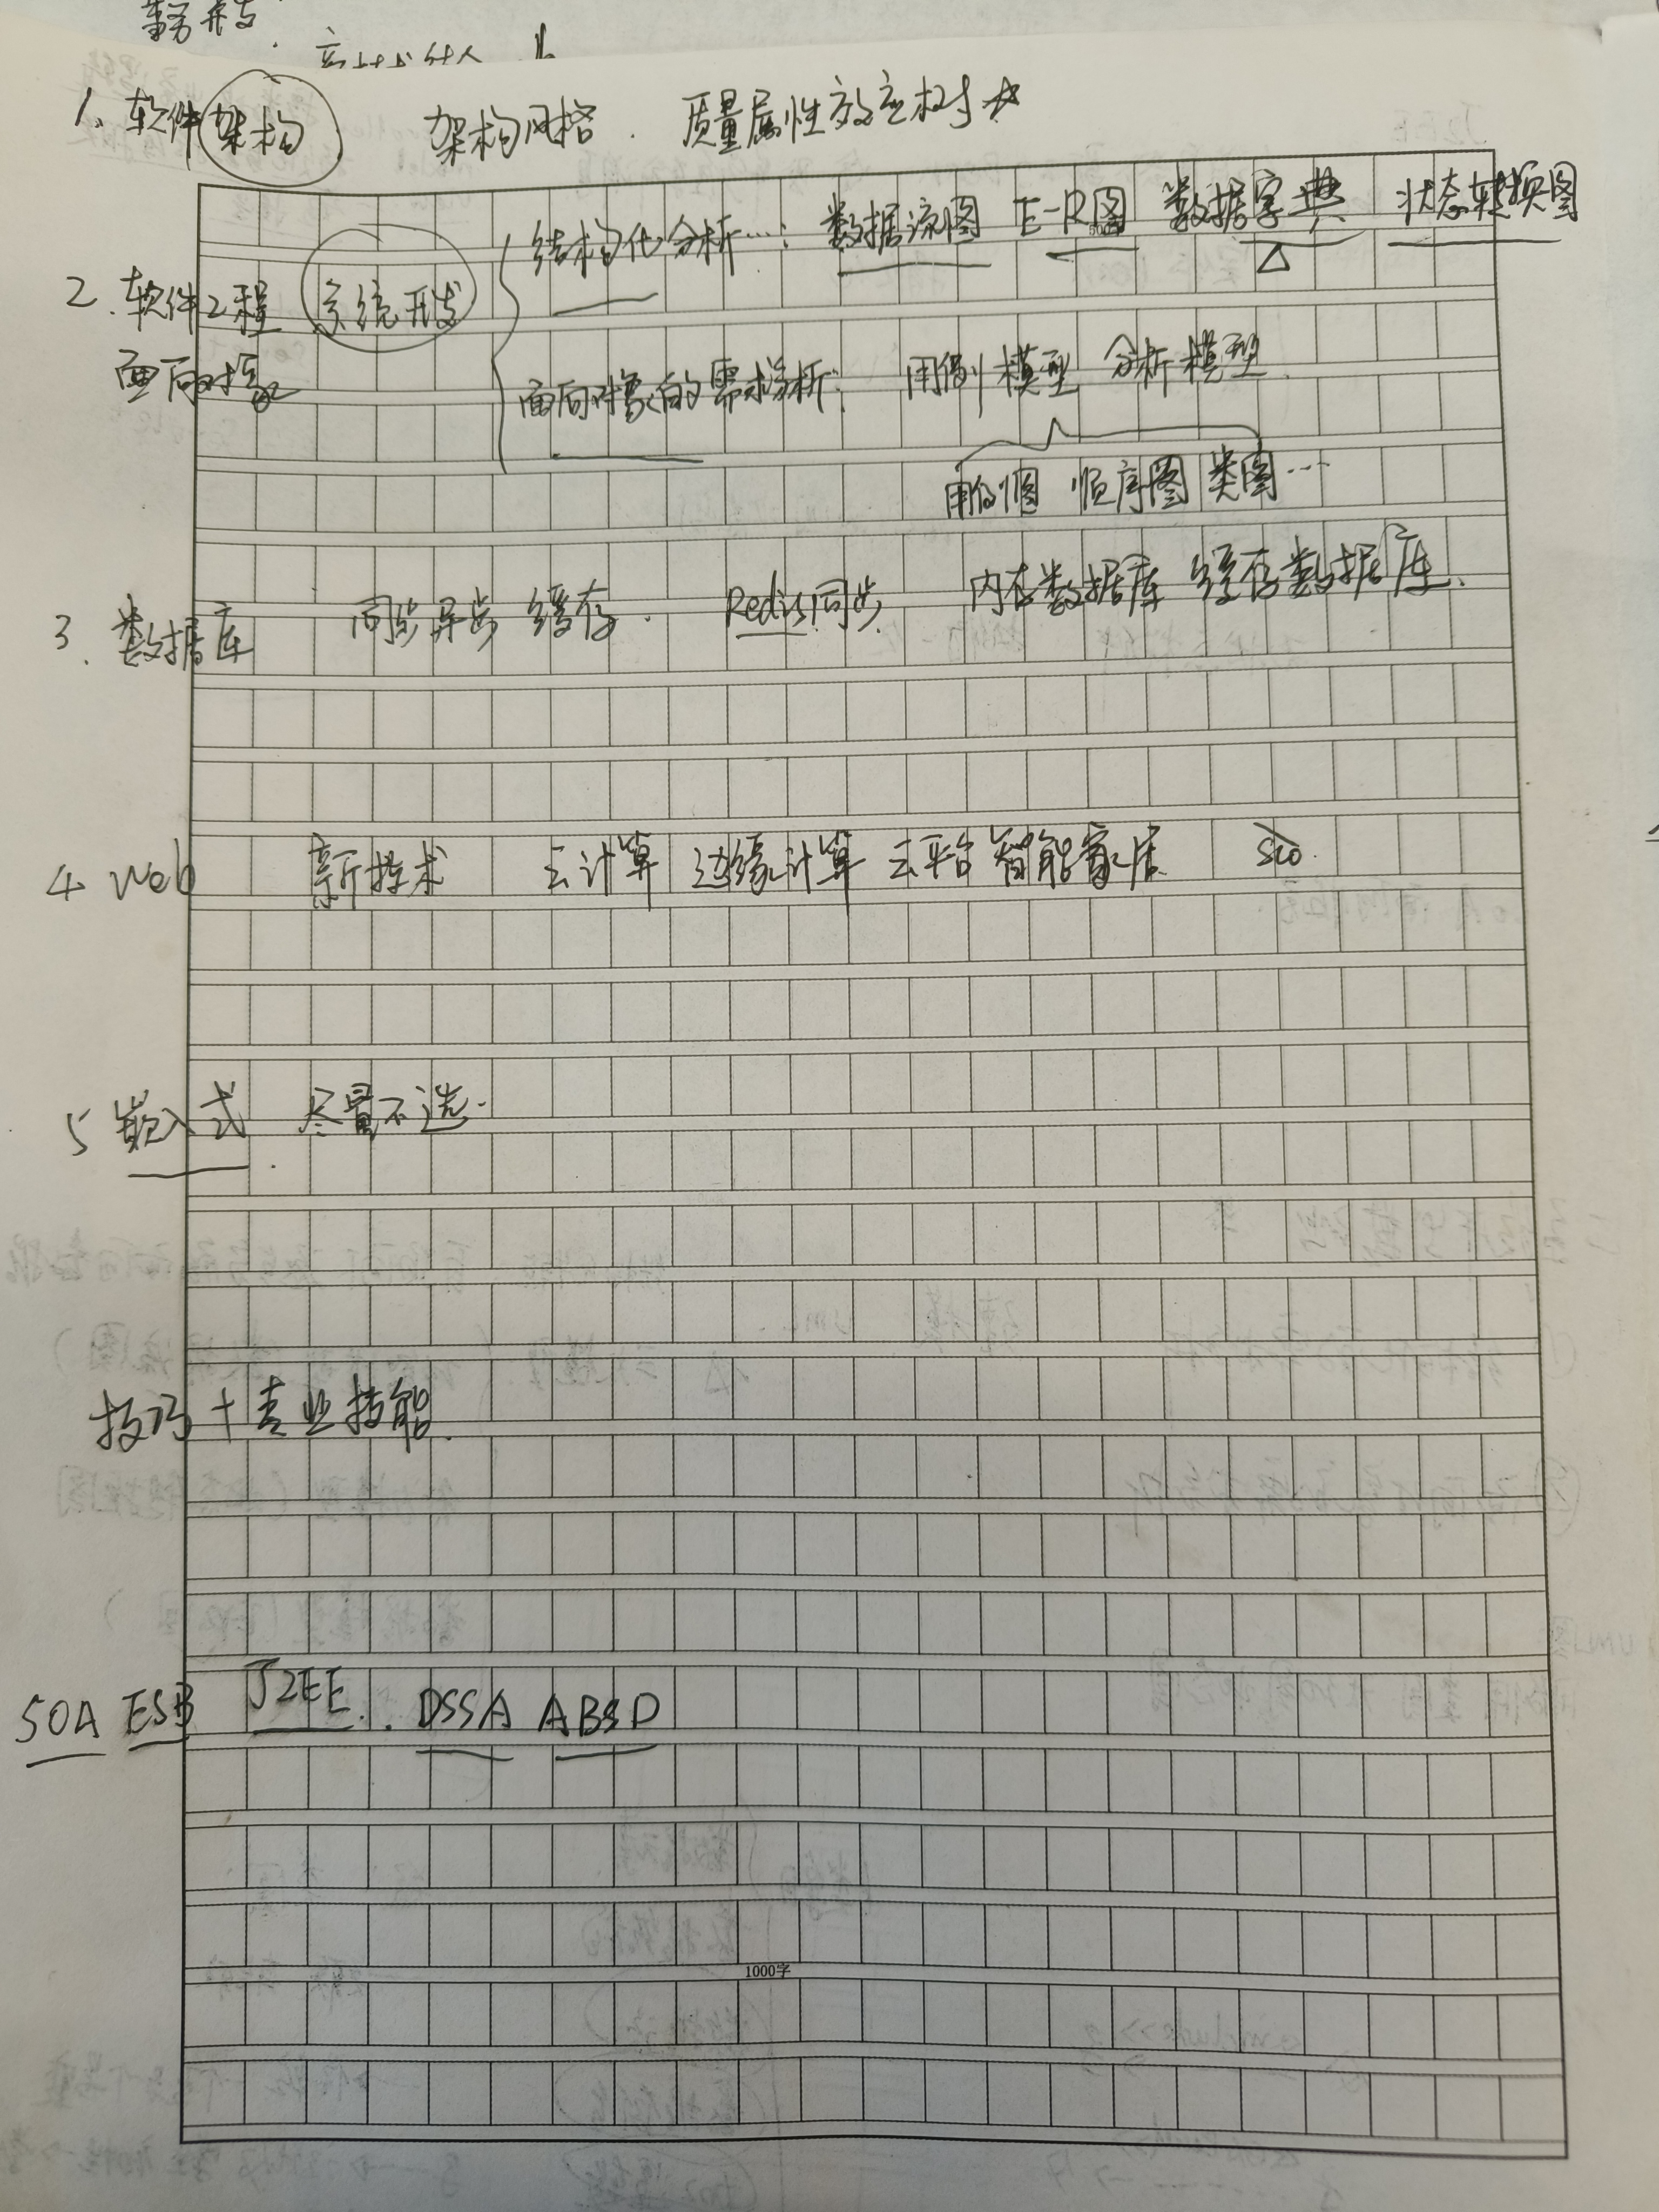 1. 软件架构 架构风格. 质量属性效应树☆
结构化分析…: 数据流图 E-R图 数据字典 状态转换图
2. 软件工程 系统开发
面向对象
面向对象的需求分析: 用例模型 分析模型.
用例图 顺序图 类图…
3. 数据库 同步异步 缓存. Redis同步. 内存数据库 缓存数据库.
4 Web 新技术 云计算 边缘计算 云平台 智能家居
5 嵌入式. 尽量不选.
技巧+专业技能.
SOA ESB J2EE. . DSSA ABSD
1000字